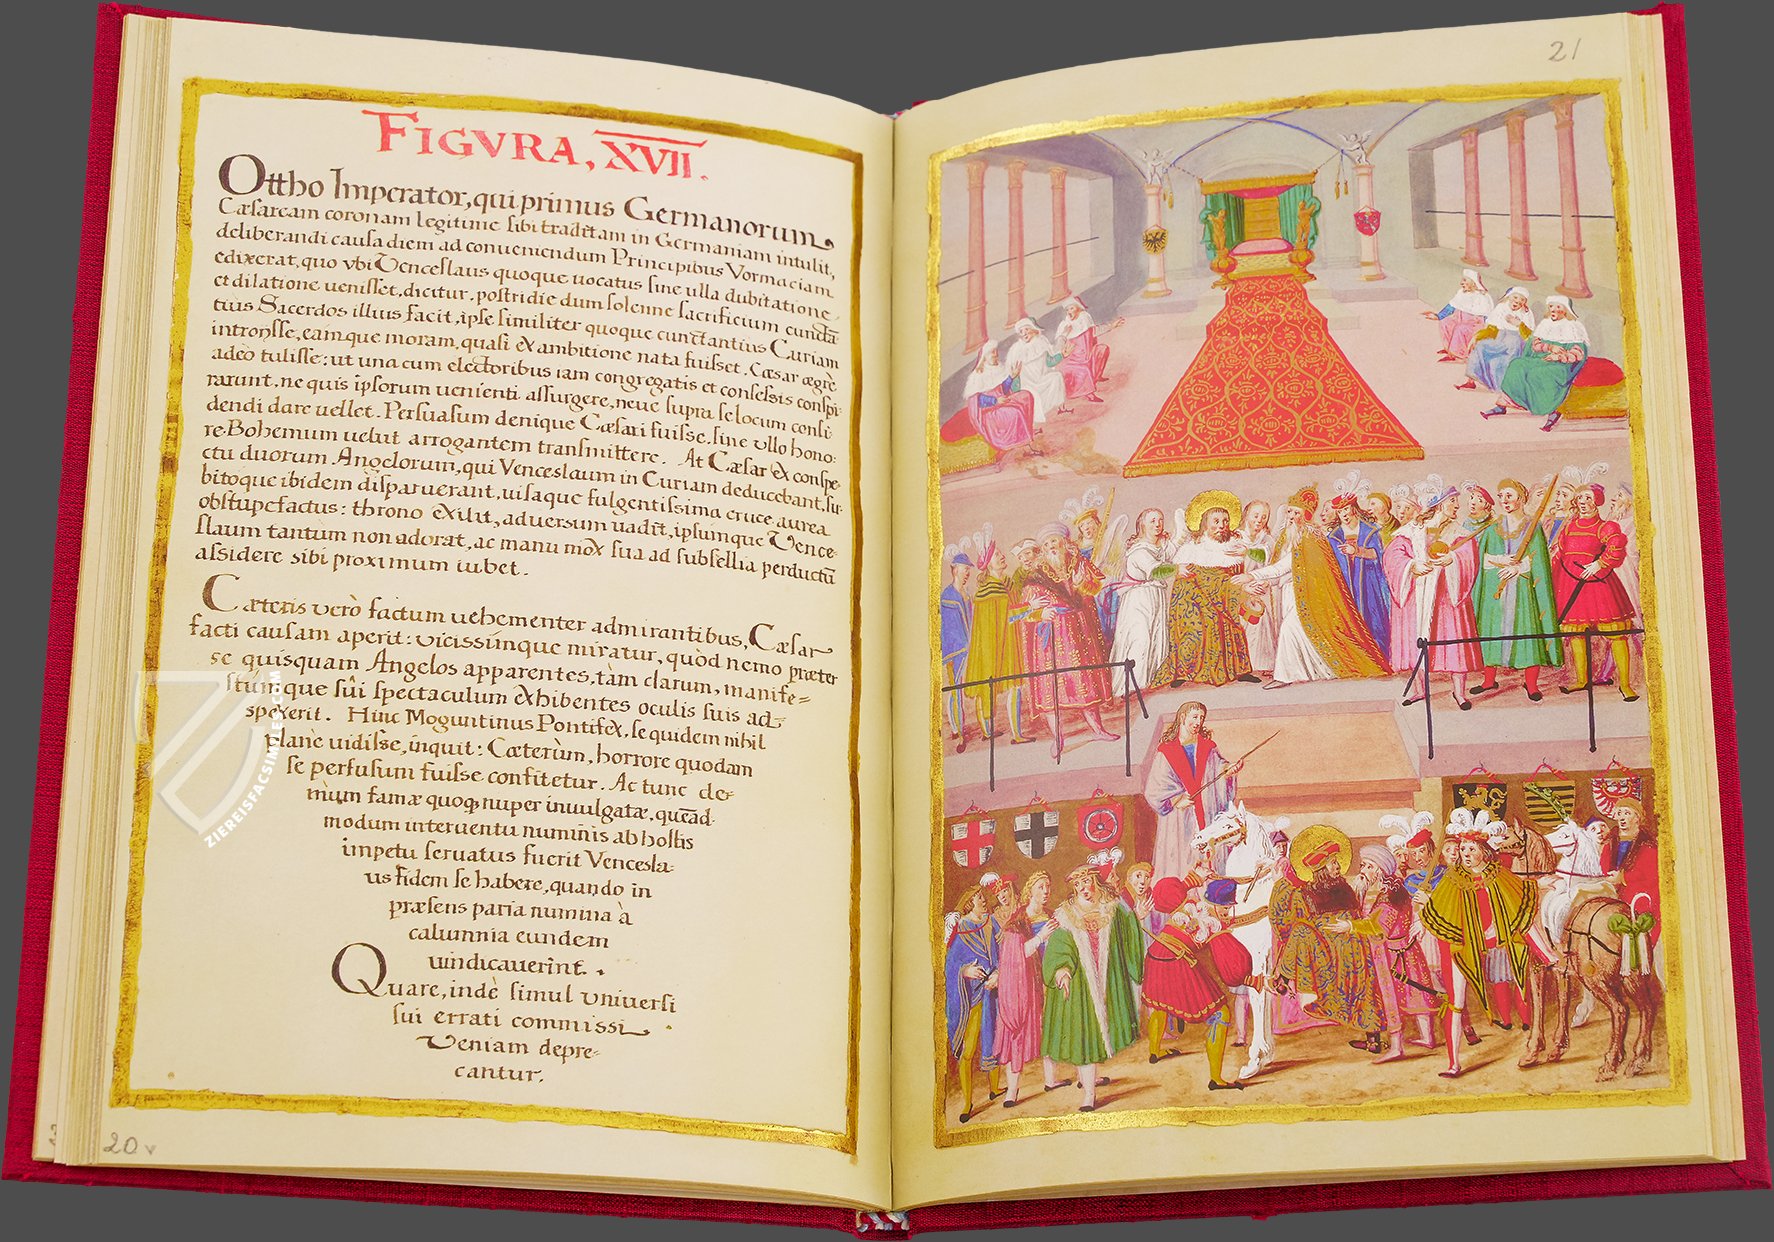 FIGVRA, XVII.
Ottho Imperator, qui primus Germanorum
Cæsaream coronam legitime sibi traditam in Germaniam intulit,
deliberandi causa diem ad conveniendum Principibus Vormaciam
edixerat, quo vbi Venceslaus quoque uocatus sine ulla dubitatione,
et dilatione uenisset, dicitur, postridie dum solenne sacrificium cunctā
tius Sacerdos illius facit, ipse similiter quoque cunctantius Curiam
introisse, eamque moram, quasi ex ambitione nata fuisset, Cæsar ægrè
adeò tulisse; ut una cum electoribus iam congregatis et consessis conspi
rarunt, ne quis ipsorum uenienti assurgere, neue supra se locum consi
dendi dare uellet. Persuasum denique Cæsari fuisse, sine vllo hono:
re Bohemum uelut arrogantem transmittere. At Cæsar ex conspe
ctu duorum Angelorum, qui Venceslaum in Curiam deducebant, su
bitoque ibidem disparuerant, uisaque fulgentissima cruce aurea
obstupefactus: throno exilit, aduersum uadit, ipsumque Vence
slaum tantùm non adorat, ac manu mox sua ad subsellia perductū
assidere sibi proximum iubet.
Cæteris verò factum uehementer admirantibus, Cæsar
facti causam aperit: vicissimque miratur, quòd nemo præter
se quisquam Angelos apparentes, tàm clarum, manife=
stumque sui spectaculum exhibentes oculis suis ad
spexerit. Hinc Moguntinus Pontifex, se quidem nihil
planè uidisse, inquit: Cæterùm, horrore quodam
se perfusum fuisse confitetur. Ac tunc de
mum famæ quoq; nuper inuulgatæ, quēad
modum interuentu numinis ab hostis
impetu seruatus fuerit Vencesla
us fidem se habere, quando in
præsens patria numina à
calumnia eundem
uindicauerint.
Quare, indè simul vniuersi
sui errati commissi
Veniam depre
cantur.
20v
21
ZIEREISFACSIMILES.COM